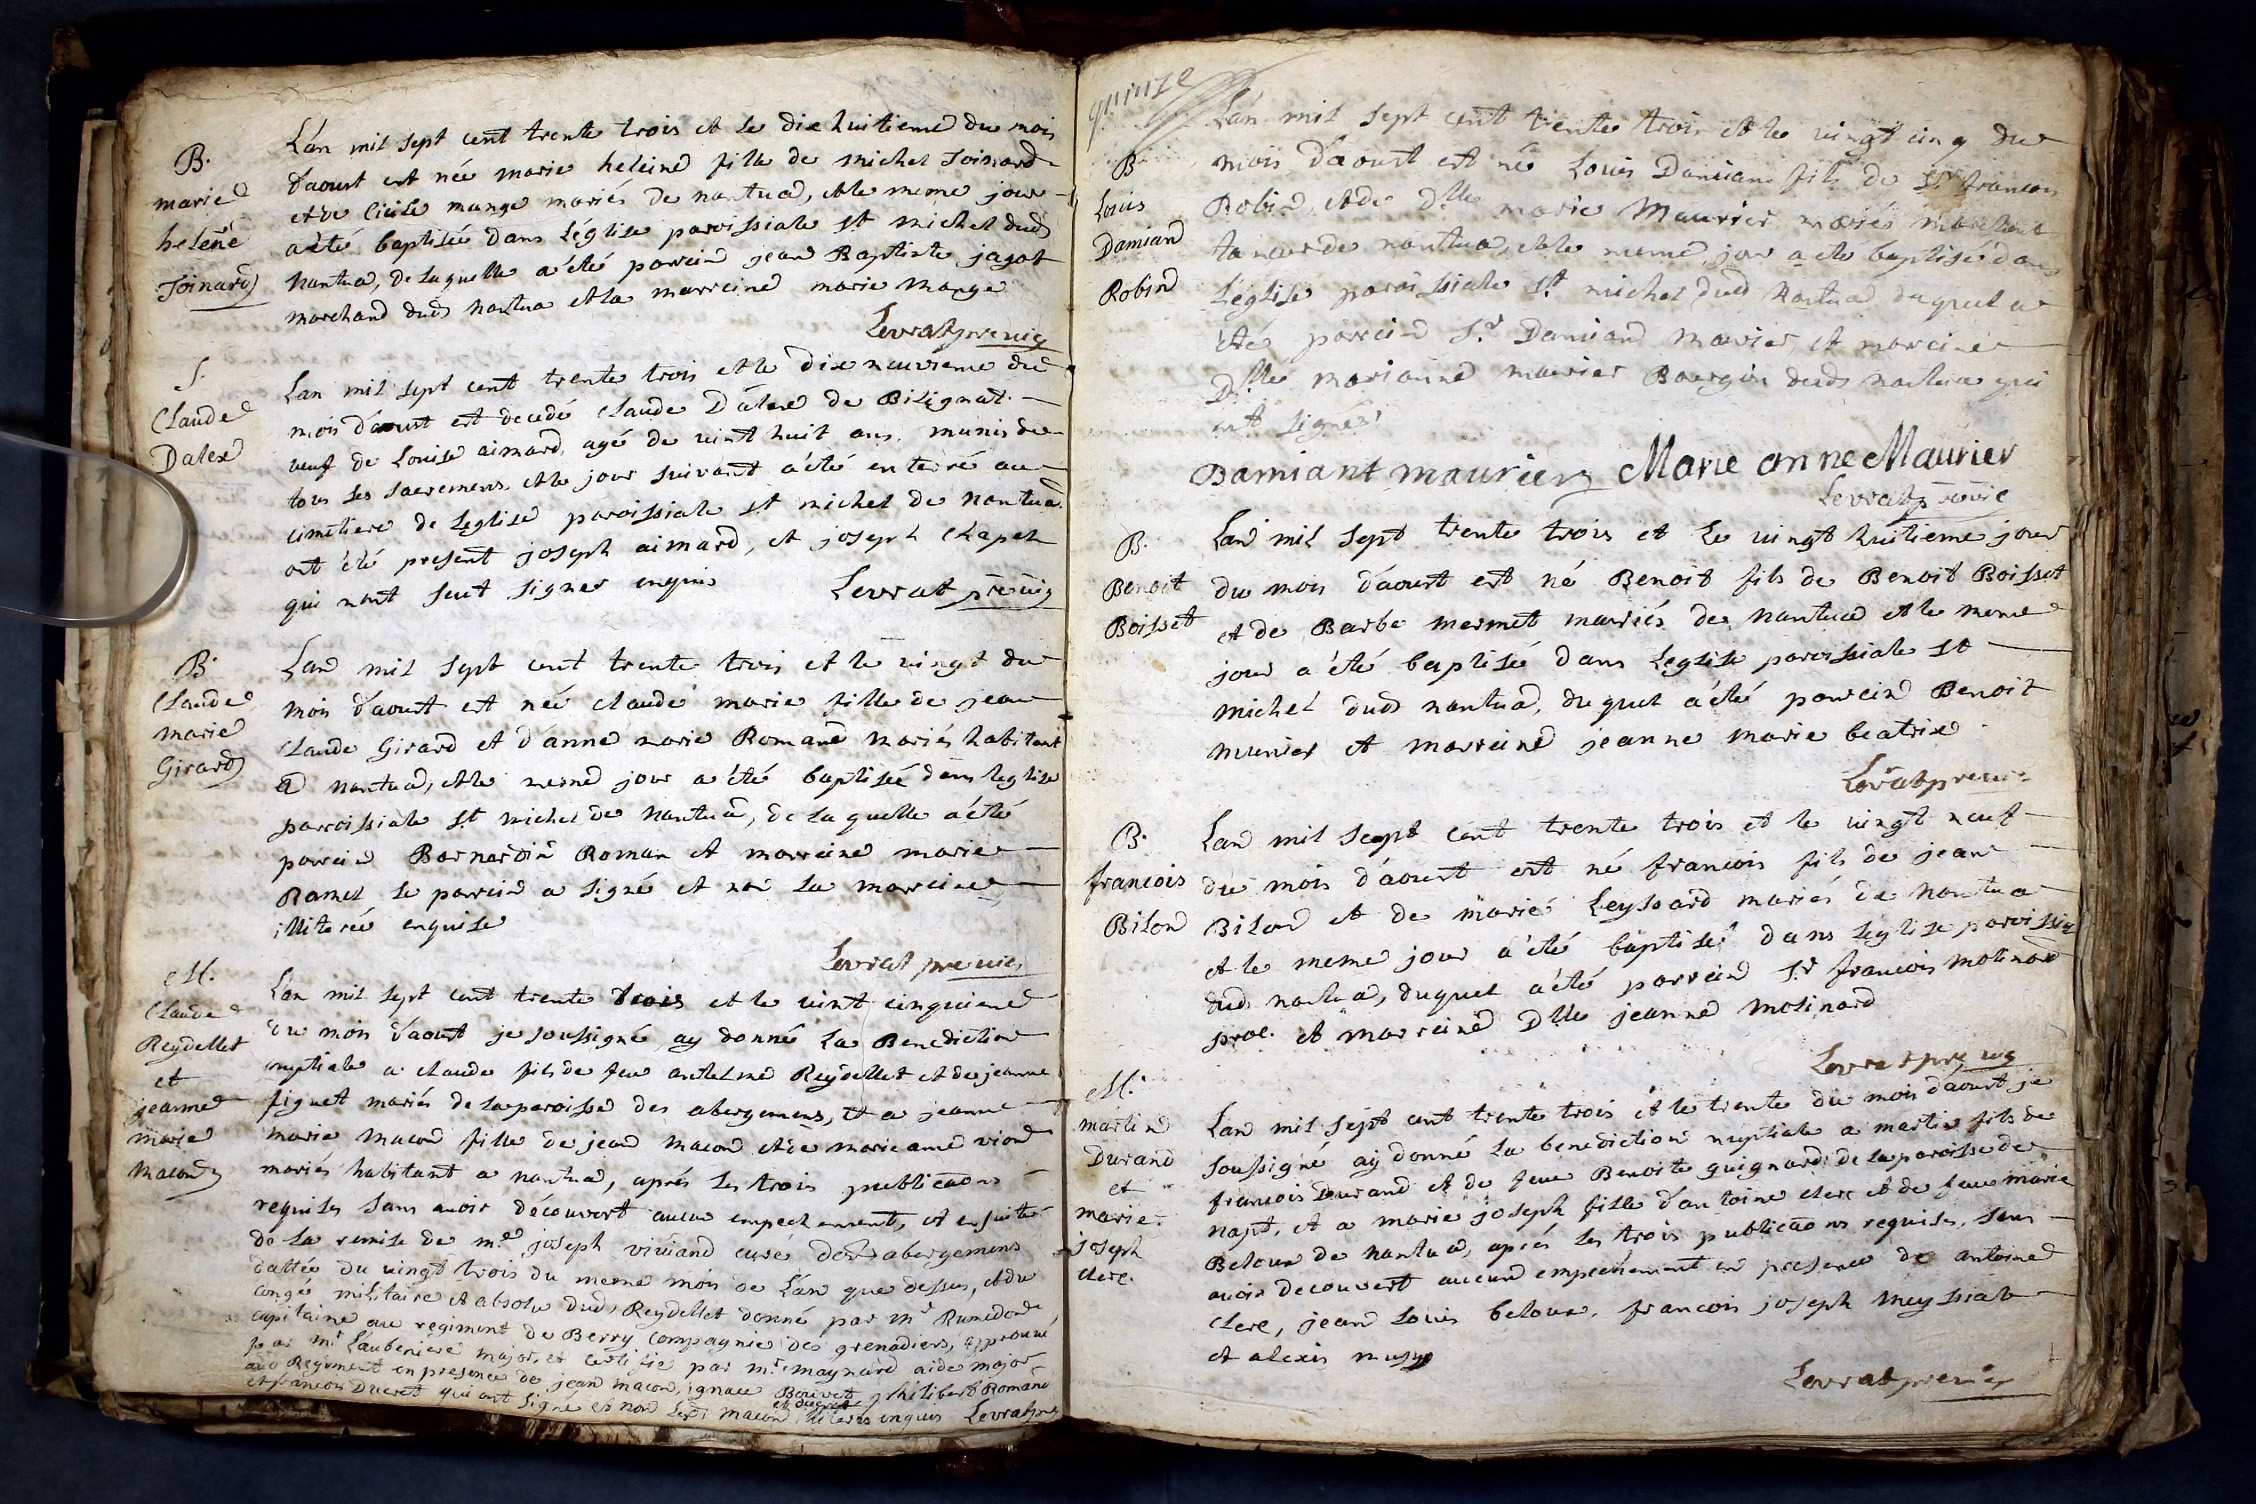 B.
marie
helene
Joinard
L'an mil sept cent trente trois et le dix huitieme du mois
d'aoust est née marie heleine fille de michel Joinard
et de Cicile mange mariés de nantua, et le meme jour
a été baptisée dans l'église paroissiale st michel dud
Nantua, de laquelle a été parrein jean Baptiste jagot
marchand dud Nantua et la marreine marie Mange
Levrat pre vic
S.
Claude
Dalex
Lan mil sept cent trente trois et le dix neuvieme du
mois d'aoust est decedé Claude Dalex de Bilignat
veuf de Louise aimard, agé de vint huit ans. munis de
tous ses sacremens, et le jour suivant a été enterré au
cimetiere de Leglise paroissiale st michel de Nantua
ont été present joseph aimard, et joseph Chapel
qui nont seut signer enquis
Levrat pre vic
B.
Claude
marie
Girard
Lan mil sept cent trente trois et le vingt du
mois d'aoust est née claude marie fille de jean
Claude Girard et d'anne marie Romand mariés habitant
a nantua, et le meme jour a été baptisée dans leglise
parroissiale st michel de Nantua, de la quelle a été
parrein Barnardin Roman et marreine marie
Ramel le parrein a signé et non la marreine
illiterée enquise
Levrat pre vic
M.
Claude
Reydellet
et
jeanne
marie
Macon
L'an mil sept cent trente trois et le vint cinquieme
du mois d'aoust je soussigné ay donné La Benediction
nuptiale a claude fils de feu antelme Reydellet et de jeanne
figuet mariés de la paroisse des abergemens, et a jeanne
marie Macon fille de jean macon et de marie anne viond
mariés habitant a nantua, aprés les trois publicaons
requises sans avoir découvert aucun empechement, et ensuite
de la remise de mre joseph viviand curé desd abergemens
dattée du vingt trois du meme mois de L'an que dessus, et du
congé militaire et absolu dud Reydellet donné par mr Rumedon
capitaine au regiment de Berry compagnie des grenadiers, approuvé
par mr Laubeniere major, et certifié par mr maynard aide major
aud Regiment en presence de jean macon, ignace Bouvet philibert Romand
et francois Ducret qui ont signé et non led macon illiteré enquis Levrat pre
quinze
B
Louis
Damian
Robin
L'an mil sept cent trente trois et le vingt cinq du
mois d'aoust est né Louis Damian fils de Sr francois
Robin, et de Dlle marie Maurier mariés marchant
taneur de nantua, et le meme jour a été baptisé dans
Leglise paroissiale st michel dud Nantua duquel a
été parrein Sr Damiand maurier, et marreine
Dlle marianne maurier Bourgois dud Nantua qui
ont signés
Damiant maurier Marie anne Maurier
Levrat pre vic
B.
Benoit
Boisset
Lan mil sept trente trois et le vingt huitieme jour
du mois d'aoust est né Benoit fils de Benoit Boisset
et de Barbe mermet mariés de Nantua et le meme
jour a été baptisé dans Leglise paroissiale st
michel dud nantua, duquel a été parrein Benoit
munier et marreine jeanne marie beatrix
Levrat pre vic
B.
francois
Bilon
Lan mil sept cent trente trois et le vingt neuf
du mois d'aoust est né francois fils de jean
Bilon et de marie Leyssard mariés de Nantua
et le meme jour a été baptisé dans leglise paroissia
dud nantua, duquel a été parrein Sr francois molinard
proc. et marreine Dlle jeanne molinard
Levrat pre vic
M.
martin
Durand
et
marie
joseph
clerc.
Lan mil sept cent trente trois et le trente du mois d'aoust je
soussigné ay donné la benediction nuptiale a martin fils de
francois Durand et de feue Benoite guignard de la paroisse de
Napt, et a marie joseph fille d'antoine clerc et de feue marie
Beloux de Nantua, aprés les trois publicaons requises, sans
avoir decouvert aucun empechement en presence de antoine
clerc, jean Louis beloux, francois joseph meyssiat
et alexis
Levrat pre vic